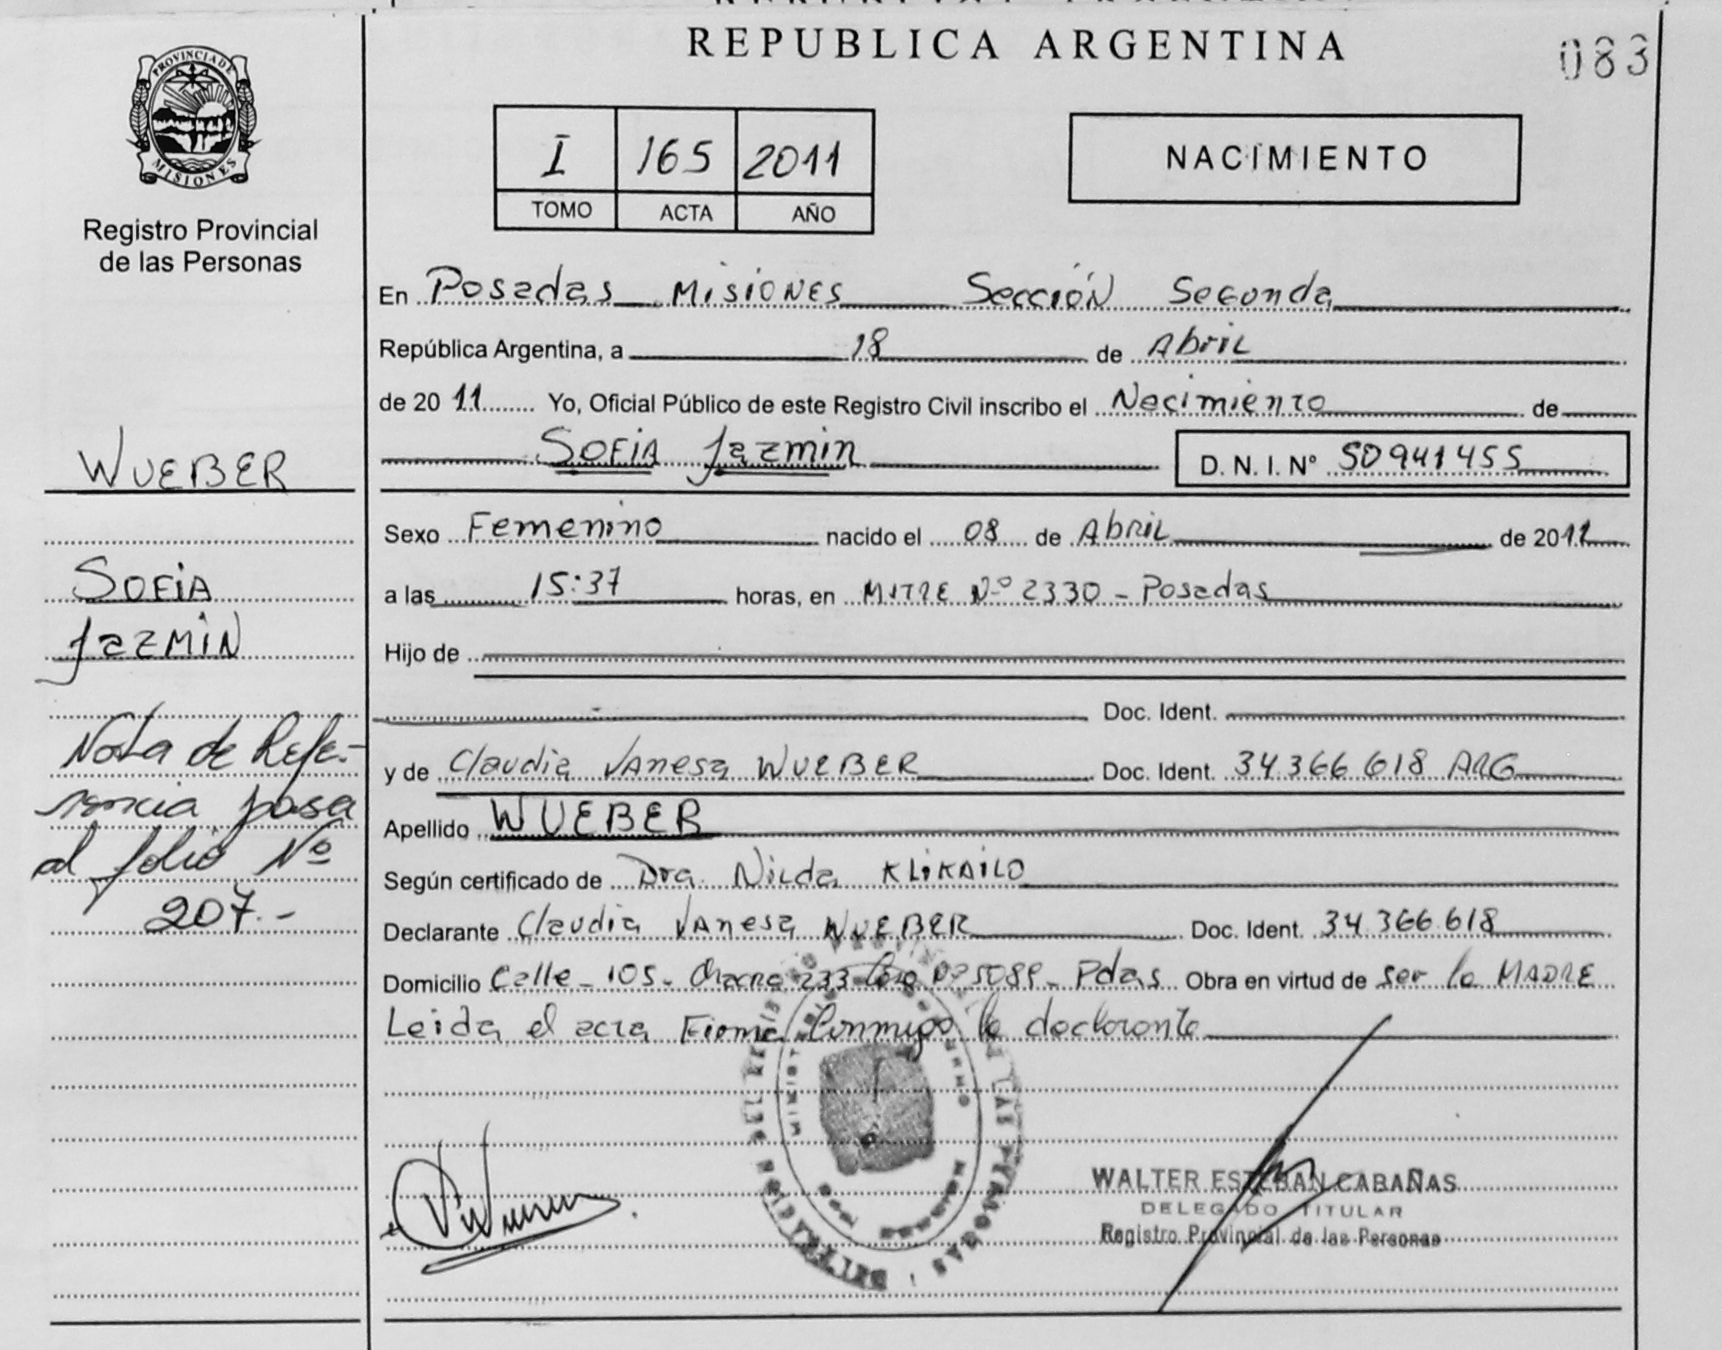 REPUBLICA ARGENTINA
083
PROVINCIA DE
MISIONES
Registro Provincial
de las Personas
I 165 2011
TOMO ACTA AÑO
NACIMIENTO
En Posadas Misiones Sección Segunda
República Argentina, a 18 de Abril
de 2011 Yo, Oficial Público de este Registro Civil inscribo el Nacimiento de
Sofia Jazmin D. N. I. Nº 50941455
Sexo Femenino nacido el 08 de Abril de 2011
a las 15:37 horas, en MITRE Nº 2330 - Posadas
Hijo de
Doc. Ident.
y de Claudia Vanesa WUEBER Doc. Ident. 34.366.618 ARG
Apellido WUEBER
Según certificado de Dra. Nilda KLIKAILO
Declarante Claudia Vanesa WUEBER Doc. Ident. 34.366.618
Domicilio Calle - 105 - Chacra 233 Nº 5089 - Pdas Obra en virtud de ser la MADRE
Leida el acta Firma Conmigo la declarante
WUEBER
SOFIA
JAZMIN
Nota de Refe-
rencia pasa
al folio Nº
207.-
WALTER ESTEBAN CABAÑAS
DELEGADO TITULAR
Registro Provincial de las Personas